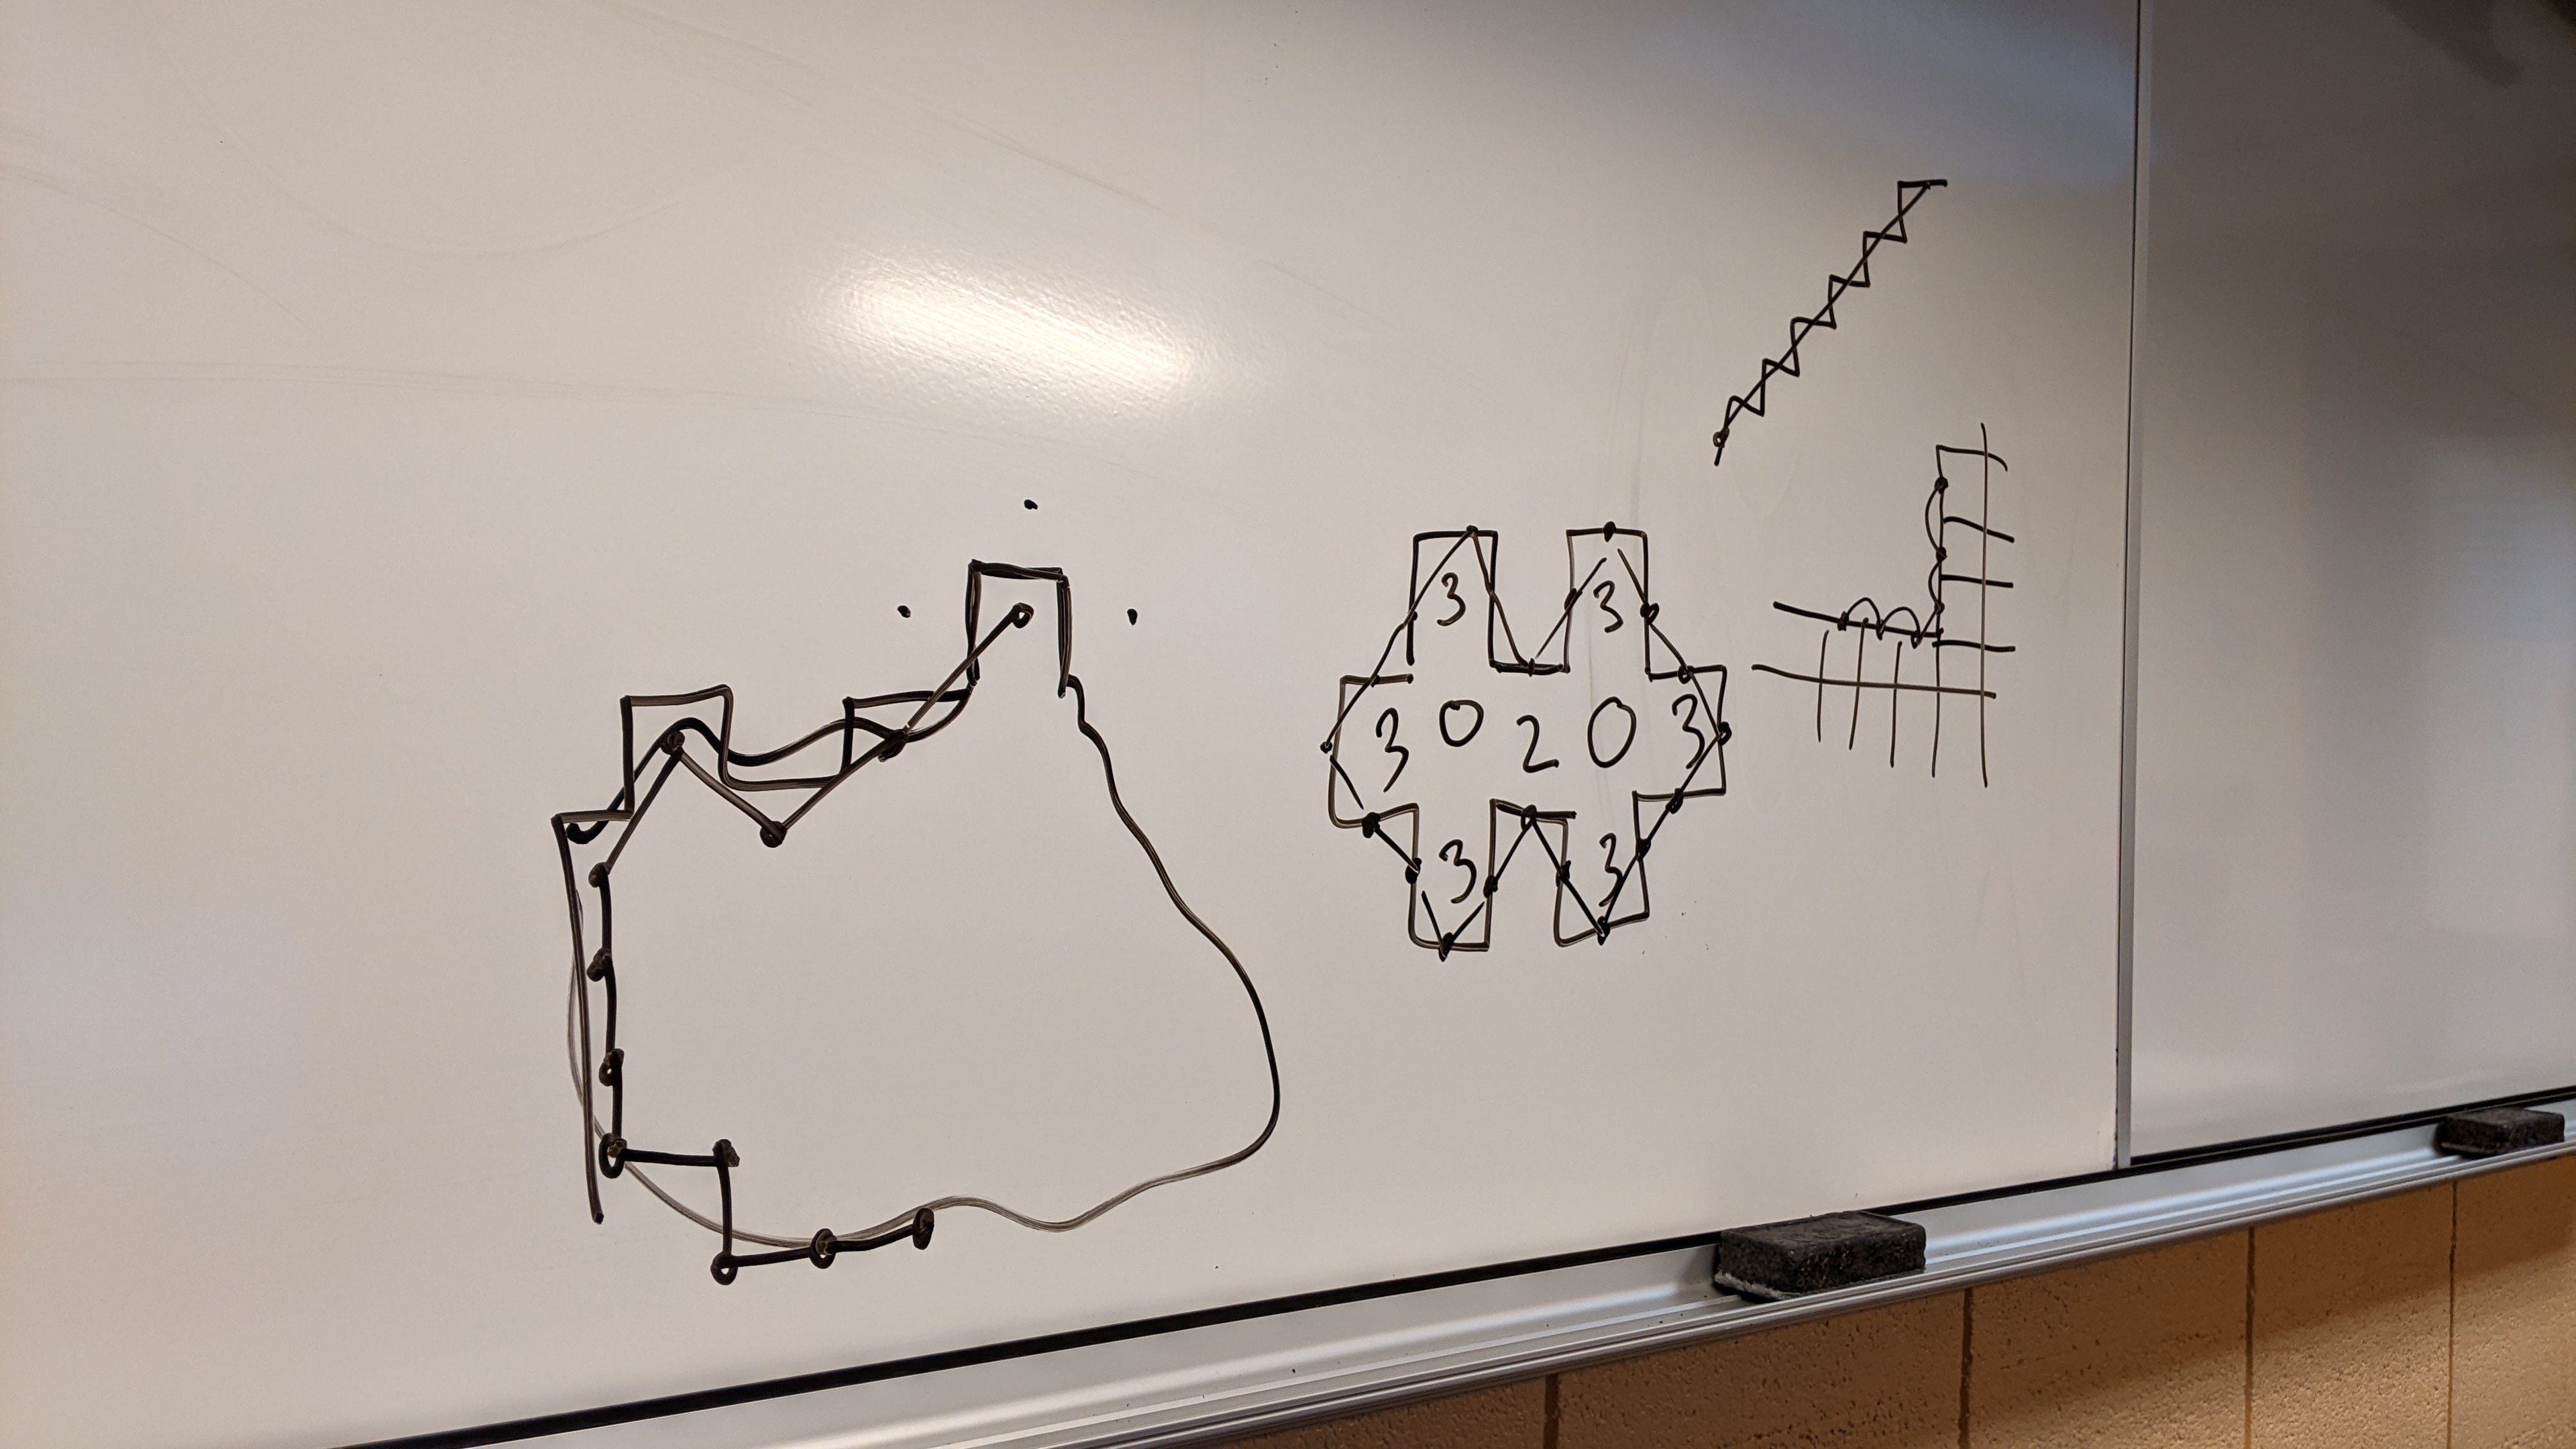 3 3
3 0 2 0 3
3 3